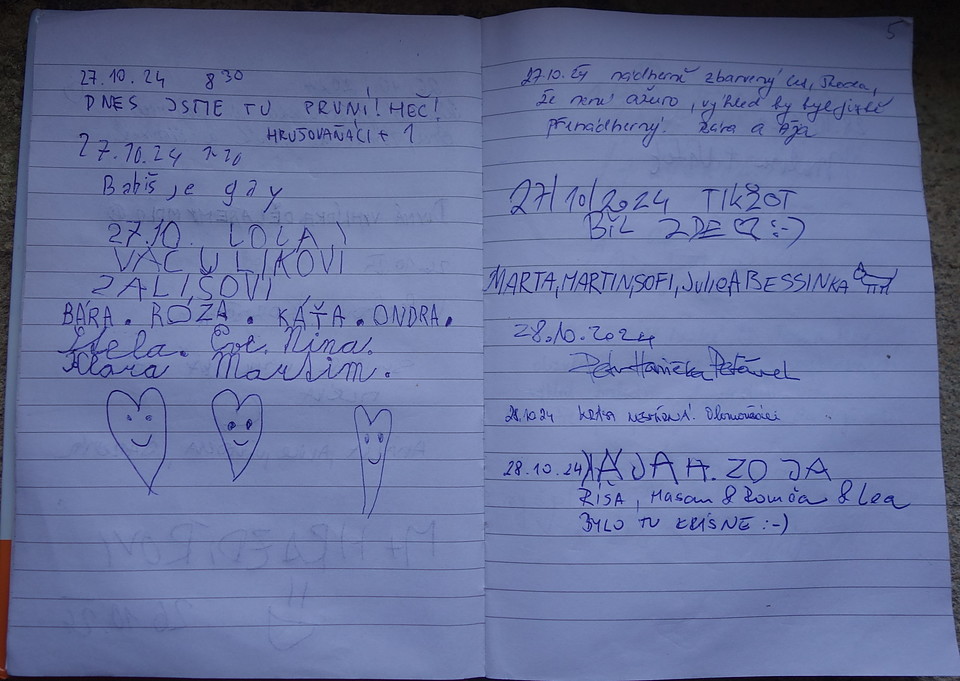 27.10.24 8 30
DNES JSME TU PRVNÍ! HEČ!
HRUŠOVAŇÁCI + 1
27.10.24
Babiš je gay
27.10. LOLA )
VACULÍKOVI
ZALIŠOVI
BÁRA. RÓZA. KÁŤA. ONDRA.
Stela. Nina.
Klára Martim.
5
27.10.24 nádherně zbarvený les, škoda,
že není ažuro, výhled by byl ještě
přenádherný. Bára a Ája
27/10/2024 TIKŽOT
BIL ZDE :-)
MARTA, MARTIN, SOFI, Julie A BESSINKA
28.10.2024
Petr Hanička
28.10.24 Olomoučáci
28.10.24) ÁJA H. ZOJA
RÍŠA, & Romča & Lea
BYLO TU KRÍSNĚ :-)